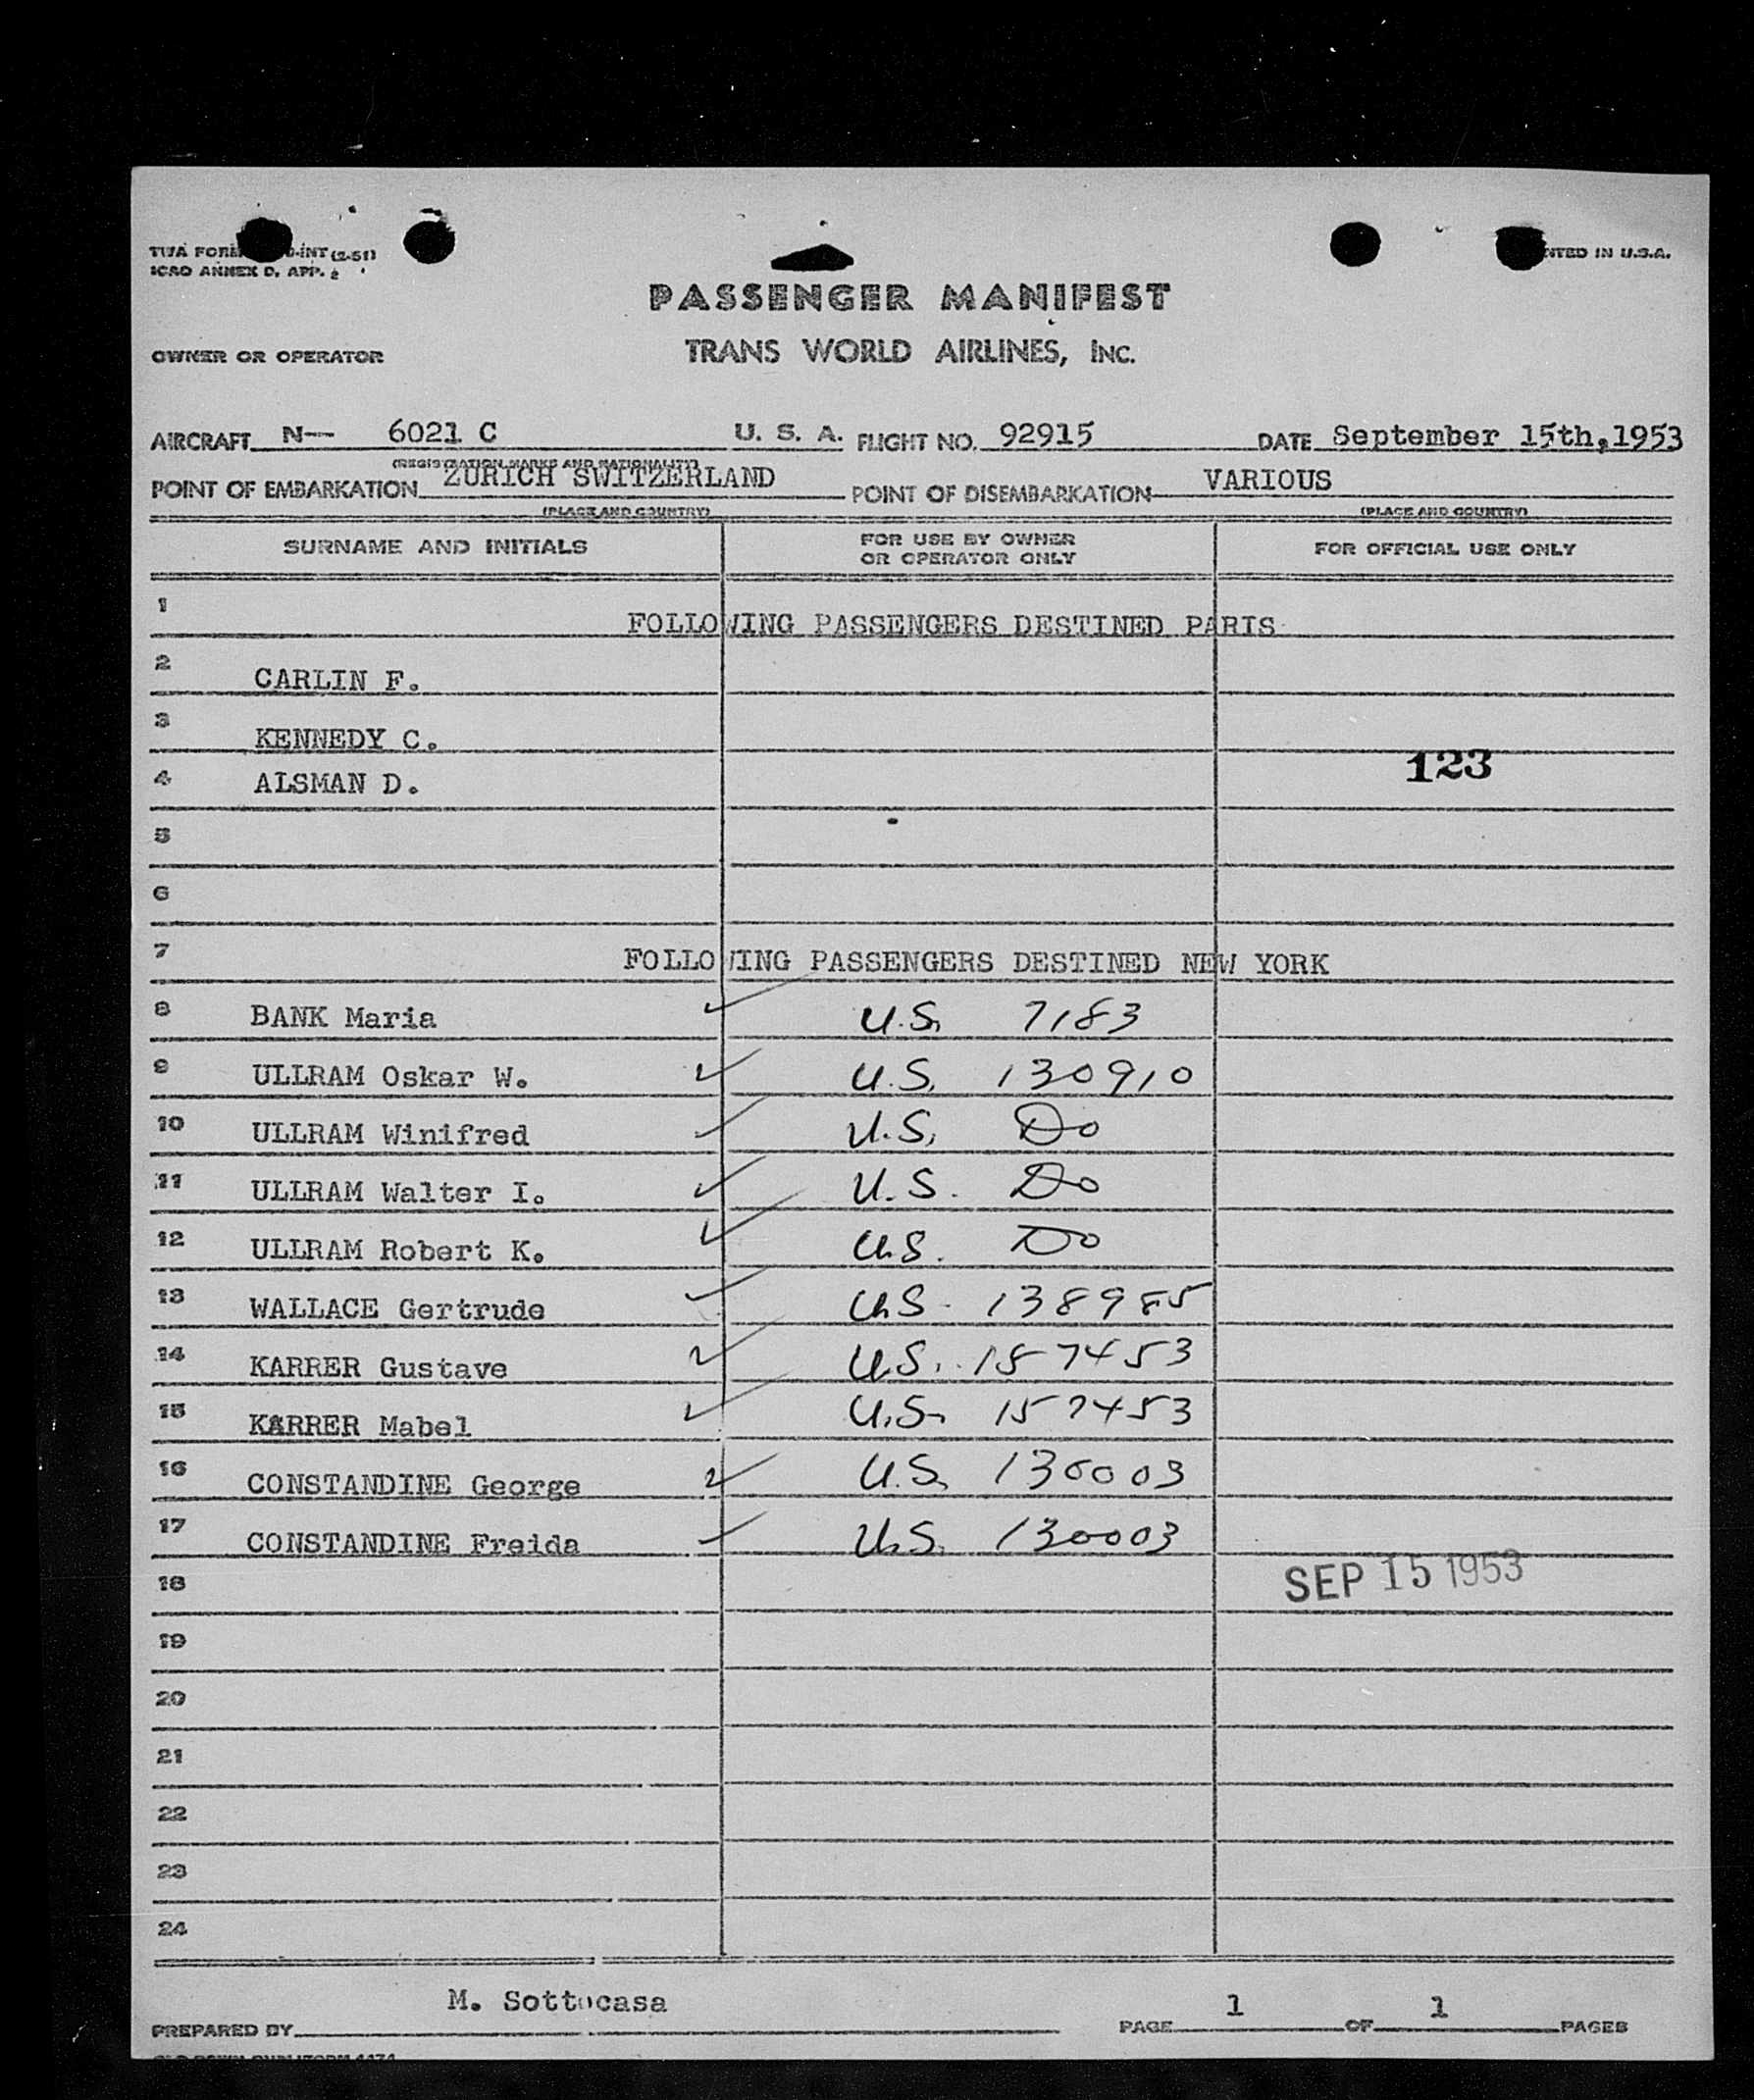 TWA FORM -INT (2-51)
ICAO ANNEX D, APP. 2
NTED IN U.S.A.
PASSENGER MANIFEST
OWNER OR OPERATOR TRANS WORLD AIRLINES, INC.
AIRCRAFT N-- 6021 C U. S. A. FLIGHT NO. 92915 DATE September 15th, 1953
(REGISTRATION MARKS AND NATIONALITY)
POINT OF EMBARKATION ZURICH SWITZERLAND POINT OF DISEMBARKATION VARIOUS
(PLACE AND COUNTRY) (PLACE AND COUNTRY)
SURNAME AND INITIALS FOR USE BY OWNER OR OPERATOR ONLY FOR OFFICIAL USE ONLY
1 FOLLOWING PASSENGERS DESTINED PARIS
2 CARLIN F.
3 KENNEDY C.
4 ALSMAN D. 123
5
6
7 FOLLOWING PASSENGERS DESTINED NEW YORK
8 BANK Maria ✓ U.S. 7183
9 ULLRAM Oskar W. ✓ U.S. 130910
10 ULLRAM Winifred ✓ U.S. Do
11 ULLRAM Walter I. ✓ U.S. Do
12 ULLRAM Robert K. ✓ U.S. Do
13 WALLACE Gertrude ✓ U.S. 138985
14 KARRER Gustave ✓ U.S. 157453
15 KARRER Mabel ✓ U.S. 157453
16 CONSTANDINE George ✓ U.S. 130003
17 CONSTANDINE Freida ✓ U.S. 130003
18 SEP 15 1953
19
20
21
22
23
24
PREPARED BY M. Sottocasa PAGE 1 OF 1 PAGES